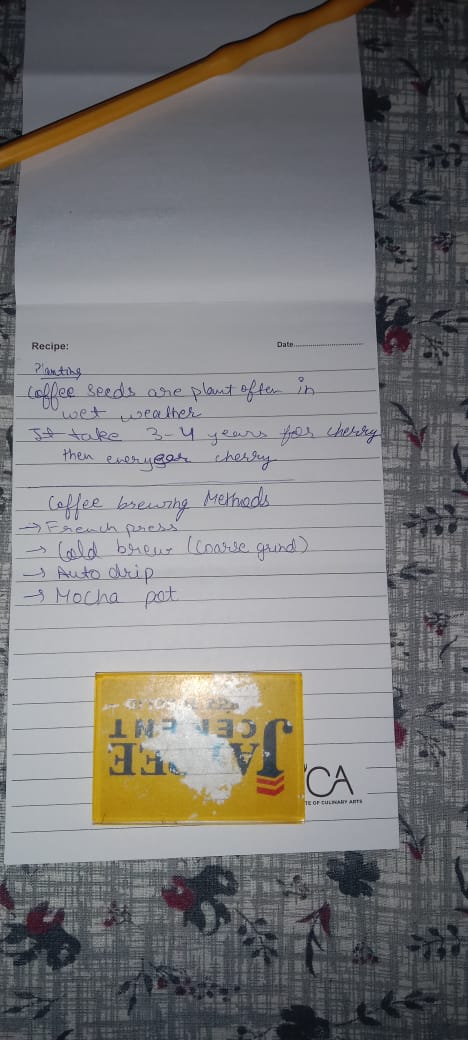 Recipe:
Date
Planting
Coffee seeds are plant often in
wet weather
It take 3-4 years for cherry
then everyear cherry
Coffee brewing Methods
→ French press
→ Cold brew (Coarse grind)
→ Auto drip
→ Mocha pot
JAYPEE
CEMENT
CA
TE OF CULINARY ARTS